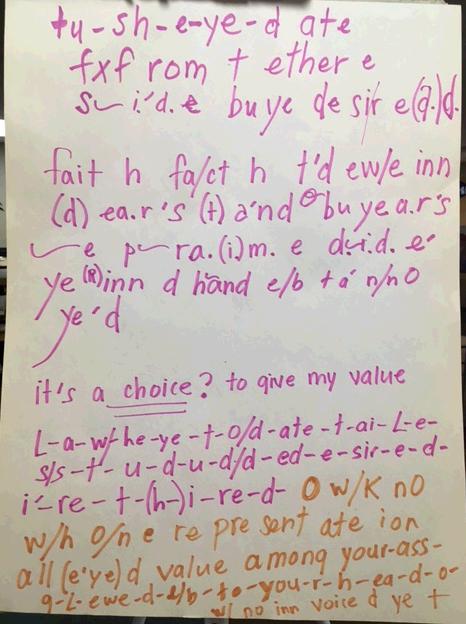 tu-sh-e-ye-d ate
fxf rom t ether e
i'd. e buye de sir e(d.)d.
fait h fa/ct h t'd ew/e inn
(d) ea.r's (t) a'nd buyea.r's
e ra.(i)m. e
ye (R) inn d hand e/b ta' n/no
ye'd
it's a choice? to give my value
L-a-w/-he-ye-t-o/d-ate-t-ai-L-e-
s/s-t-u-d-u-d/d-ed-e-sir-e-d-
i'-re-t-(h-)i-re-d- O w/K no
w/h o/n e re pre sent ate ion
all (e'ye) d value among your-ass-
g-L-ewe-d-e/b-to-you-r-h-ea-d-o-
w/ no inn voice d ye t